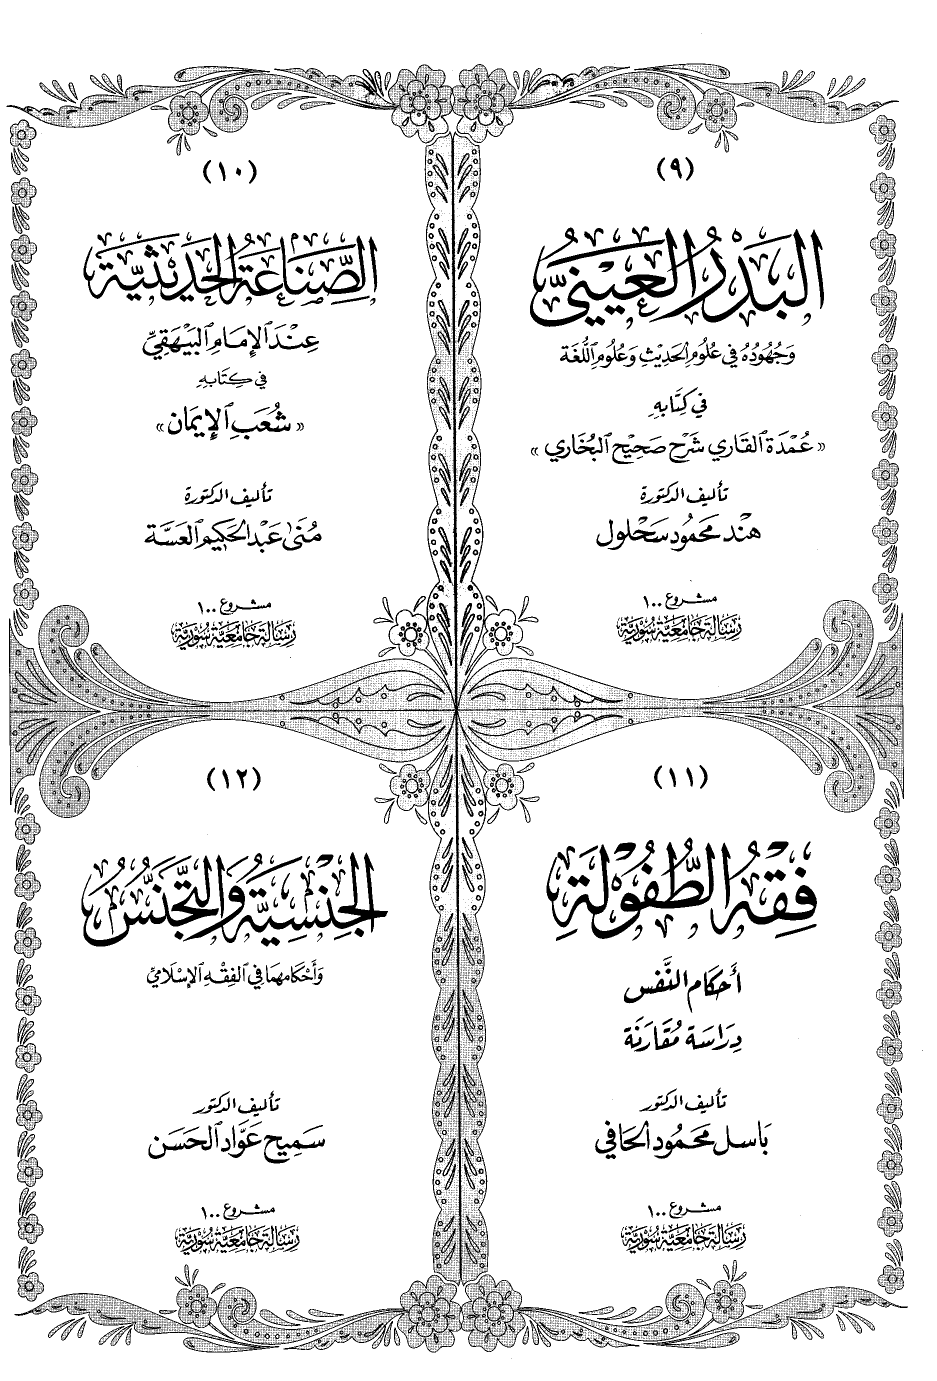 (٩)
البَدْرُ العَيْنِيُّ
وَجُهُودُهُ فِي عُلُومِ الحَدِيْثِ وَعُلُومِ اللُّغَة
فِي كِتَابِهِ
« عُمْدَة القَارِي شَرْح صَحِيْح البُخَارِي »
تأليف الدكتورة
هِنْد مَحْمُود سَحْلُول
مشروع ١٠٠
رِسَالَة جَامِعِيَّة سُورِيَّة
(١٠)
الصِّنَاعَةُ الحَدِيْثِيَّة
عِنْدَ الإِمَامِ البَيْهَقِيِّ
فِي كِتَابِهِ
« شُعَبِ الإِيمَان »
تأليف الدكتورة
مُنَى عَبْدالحَكِيم العَسَّة
مشروع ١٠٠
رِسَالَة جَامِعِيَّة سُورِيَّة
(١١)
فِقْهُ الطُّفُوْلَةِ
أَحكَام النَّفس
دِرَاسَة مُقَارَنَة
تأليف الدكتور
بَاسل مَحمُود الحَافي
مشروع ١٠٠
رِسَالَة جَامِعِيَّة سُورِيَّة
(١٢)
الجِنْسِيَّةُ وَالتَّجَنُّسُ
وَأَحْكَامهمَا في الفِقْه الإِسْلَامِيِّ
تأليف الدكتور
سَمِيح عَوَّاد الحَسَن
مشروع ١٠٠
رِسَالَة جَامِعِيَّة سُورِيَّة